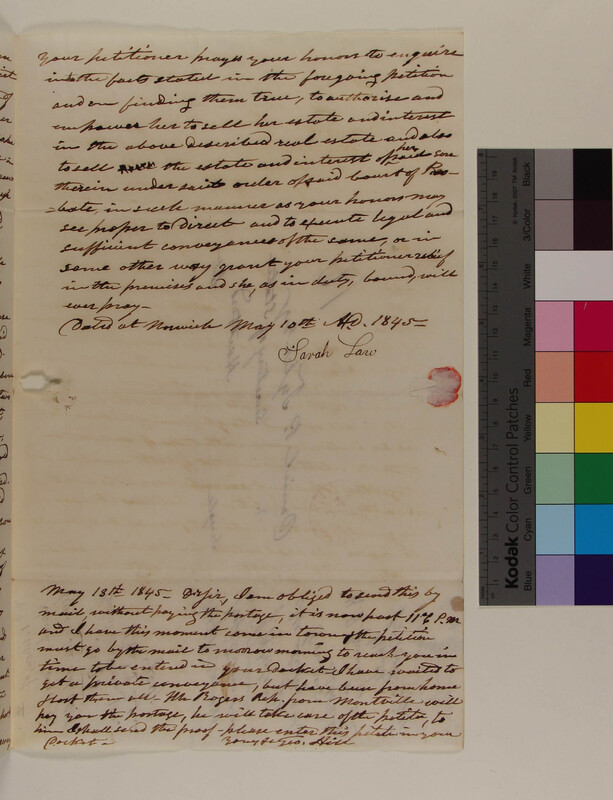 Your petitioner prays your honors to enquire
into the facts stated in the foregoing petition
and on finding them true, to authorise and
empower her to sell her estate and interest
in the above described real estate and also
to sell the estate and interest of her said son
therein under said order of said Court of Pro-
-bate, in such manner as your honors may
see proper to direct and to execute legal and
sufficient conveyances of the same, or in
some other way grant your petitioner relief
in the premises and she, as in duty, bound, will
ever pray—
Dated at Norwich May 10th AD. 1845—
Sarah Law
May 13th 1845— Dr Sir, I am obliged to send this by
mail without paying the postage, it is now past 11 P.M
and I have this moment come in town & the petition
must go by the mail to morrow morning to reach you in
time to be entered in your Docket. I have waited to
get a private conveyance, but have been from home
& lost them all. Mr Rogers Rep. from Montville will
pay you the postage, he will take care of the petitn, to
him I shall send the proof— please enter this petitn in your
Docket—
Hill
Kodak Color Control Patches
© Kodak, 2007 TM: Kodak
Blue
Cyan
Green
Yellow
Red
Magenta
White
3/Color
Black